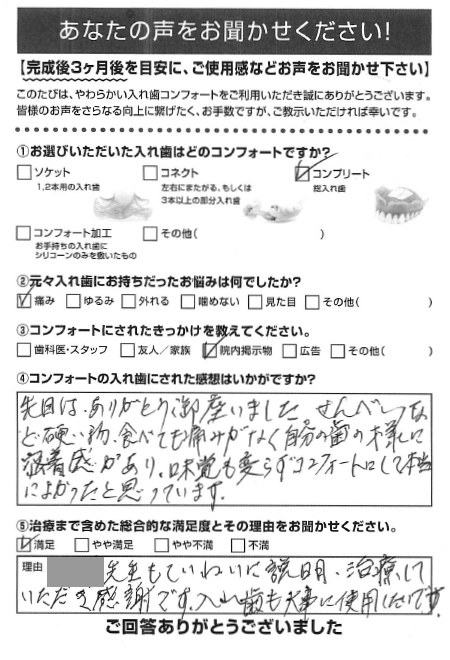 あなたの声をお聞かせください!
【完成後3ヶ月後を目安に、ご使用感などお声をお聞かせ下さい】
このたびは、やわらかい入れ歯コンフォートをご利用いただき誠にありがとうございます。
皆様のお声をさらなる向上に繋げたく、お手数ですが、ご教示いただければ幸いです。
①お選びいただいた入れ歯はどのコンフォートですか?
ソケット コネクト コンプリート
1,2本用の入れ歯 左右にまたがる、もしくは 総入れ歯
3本以上の部分入れ歯
コンフォート加工 その他( )
お手持ちの入れ歯に
シリコーンのみを敷いたもの
②元々入れ歯にお持ちだったお悩みは何でしたか?
痛み ゆるみ 外れる 噛めない 見た目 その他( )
③コンフォートにされたきっかけを教えてください。
歯科医・スタッフ 友人/家族 院内掲示物 広告 その他( )
④コンフォートの入れ歯にされた感想はいかがですか?
先日は、ありがとう御座いました。せんべいな
ど硬い物、食べても痛みがなく自分の歯の様に
密着感があり、味覚も変らずコンフォートにして本当
によかったと思っています。
⑤治療まで含めた総合的な満足度とその理由をお聞かせください。
満足 やや満足 やや不満 不満
理由 先生もていねいに説明、治療して
いただき感謝です。入れ歯も大事に使用したいです。
ご回答ありがとうございました